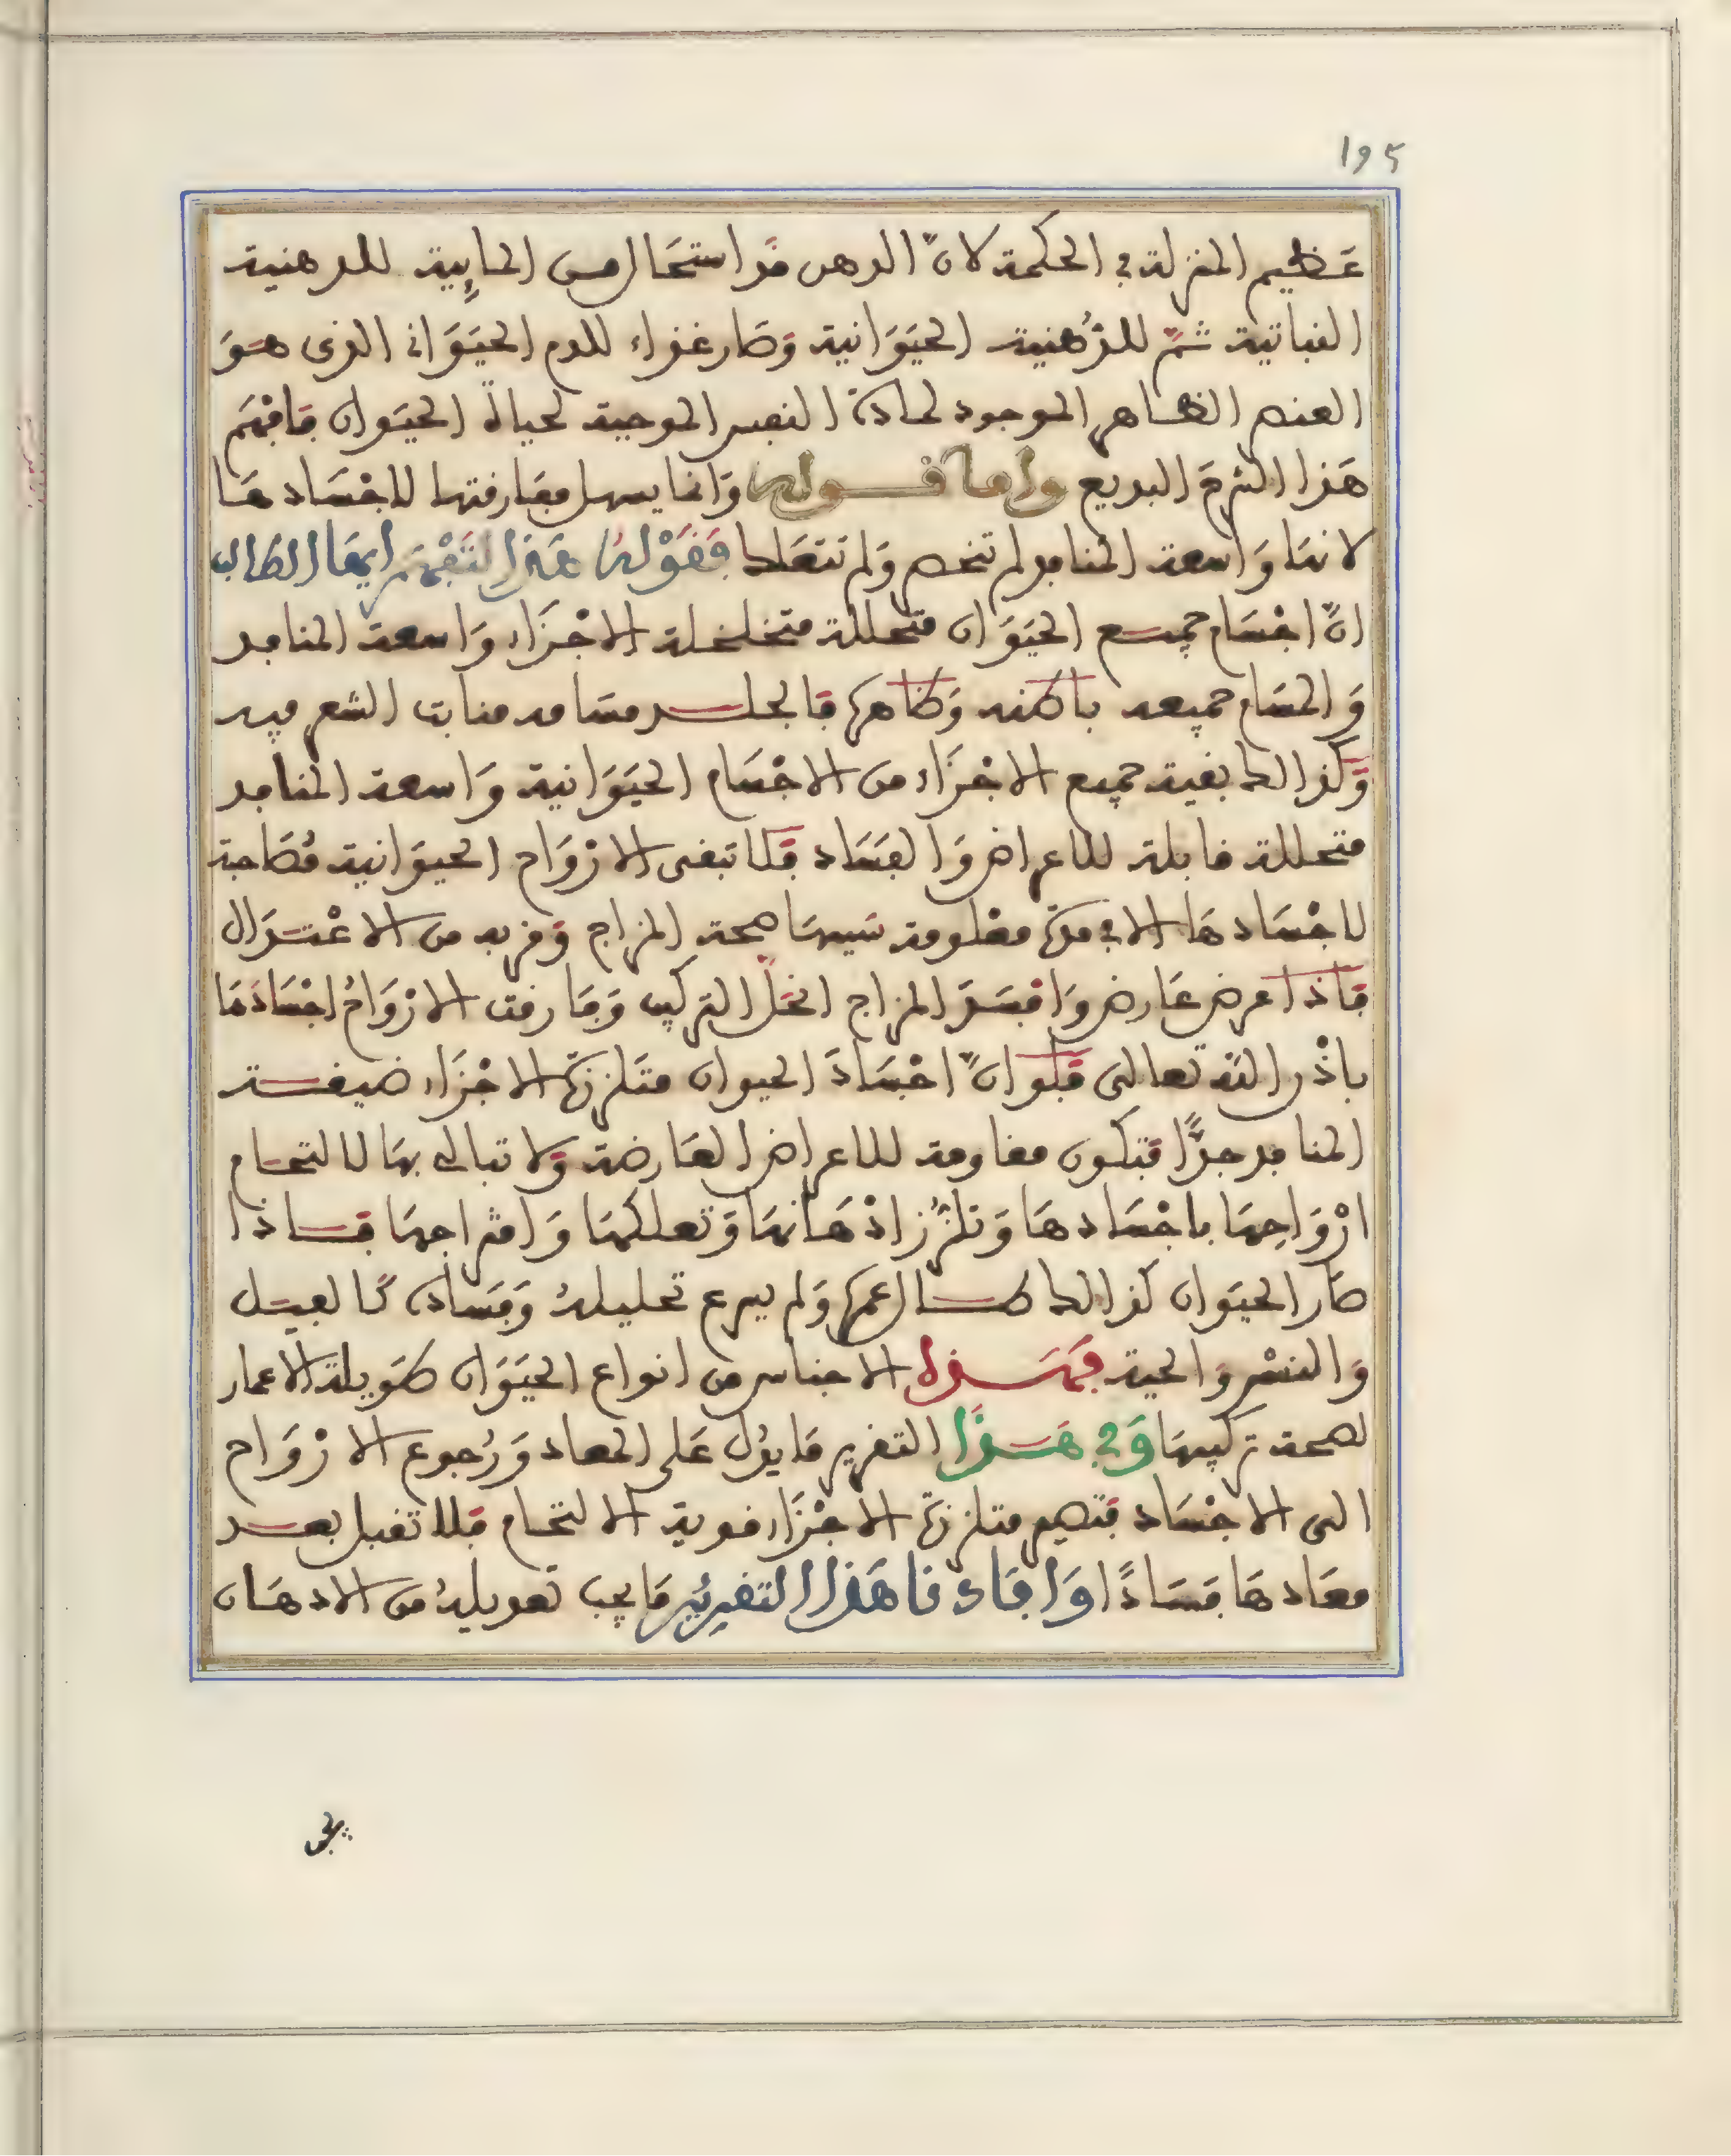 195
عظيم المنزلة في الحكمة لانّ الدهن قد استحال من المايية للدهنية
النباتية ثمّ للدُهنية الحيَوَانية وَصَار غذاء للدم الحيَوَاني الذي هوَ
العنصر الظاهر الموجود لمادة النفس الموجبة لحياة الحيَوان فافهم
هَذا الشرحَ البديع واما قوله وَانما يسهل مفارقتها لاجْسَادهَا
لانهَا وَاسعة المنافد لم تنحصر وَلم تتعلك فَقَوْلهُ هَذا لتَفْهَمَ ايهَا الطالب
انّ اجْسَام جميع الحيَوَان متحللة متخلخلة الاجْزَاء وَاسعة المنافد
وَالمسَام جميعه باطنه وَظاهره فالجلد مسَامه منابت الشعر فيه
وَكذالك بقية جميع الاجْزَاء من الاجْسَام الحيَوَانية وَاسعة المنافد
متحللة قابلة للاعراض وَالفسَاد فلا تبقى الارْوَاح الحيوَانية مُصَاحبة
لاجْسَادهَا الا في مدة معْلومة سَببهَا صحة المزاج وَقربه من الاعْتدَال
فَاذا عرض عَارض وَافسَدَ المزاج انحَلّ التركيب وَفارقت الارْوَاحُ اجْسَادَهَا
باذْن الله تعالى فَلَو انّ اجْسَادَ الحيوان متلززة الاجْزَاء ضيقة
المنافد جدًّا فتكون مقاومة للاعراض العَارضة وَلا تبالي بهَا لالتحام
ارْوَاحِهَا باجْسَادهَا وَتلزّز اذهَانهَا وَتعلكهَا وَامتزاجهَا فاذا
صَار الحيَوان كذالك طال عمره وَلم يسرع تحليلهُ وَفسَاده كالفيل
وَالنسْر وَالحية فهَذه الاجناس من انواع الحيَوَان طَويلة الاعمار
لصحة تركيبهَا وَفي هَذَا التقرير مَا يدُل عَلى المعاد وَرُجوع الارْوَاح
الى الاجْسَاد فتصير متلززة الاجْزَاء قوية الالتحام فلا تقبل بعد
معَادهَا فسَادًا وَافَادنا هَذا التقريرُ مَا يجب تعويلهُ من الادهَان